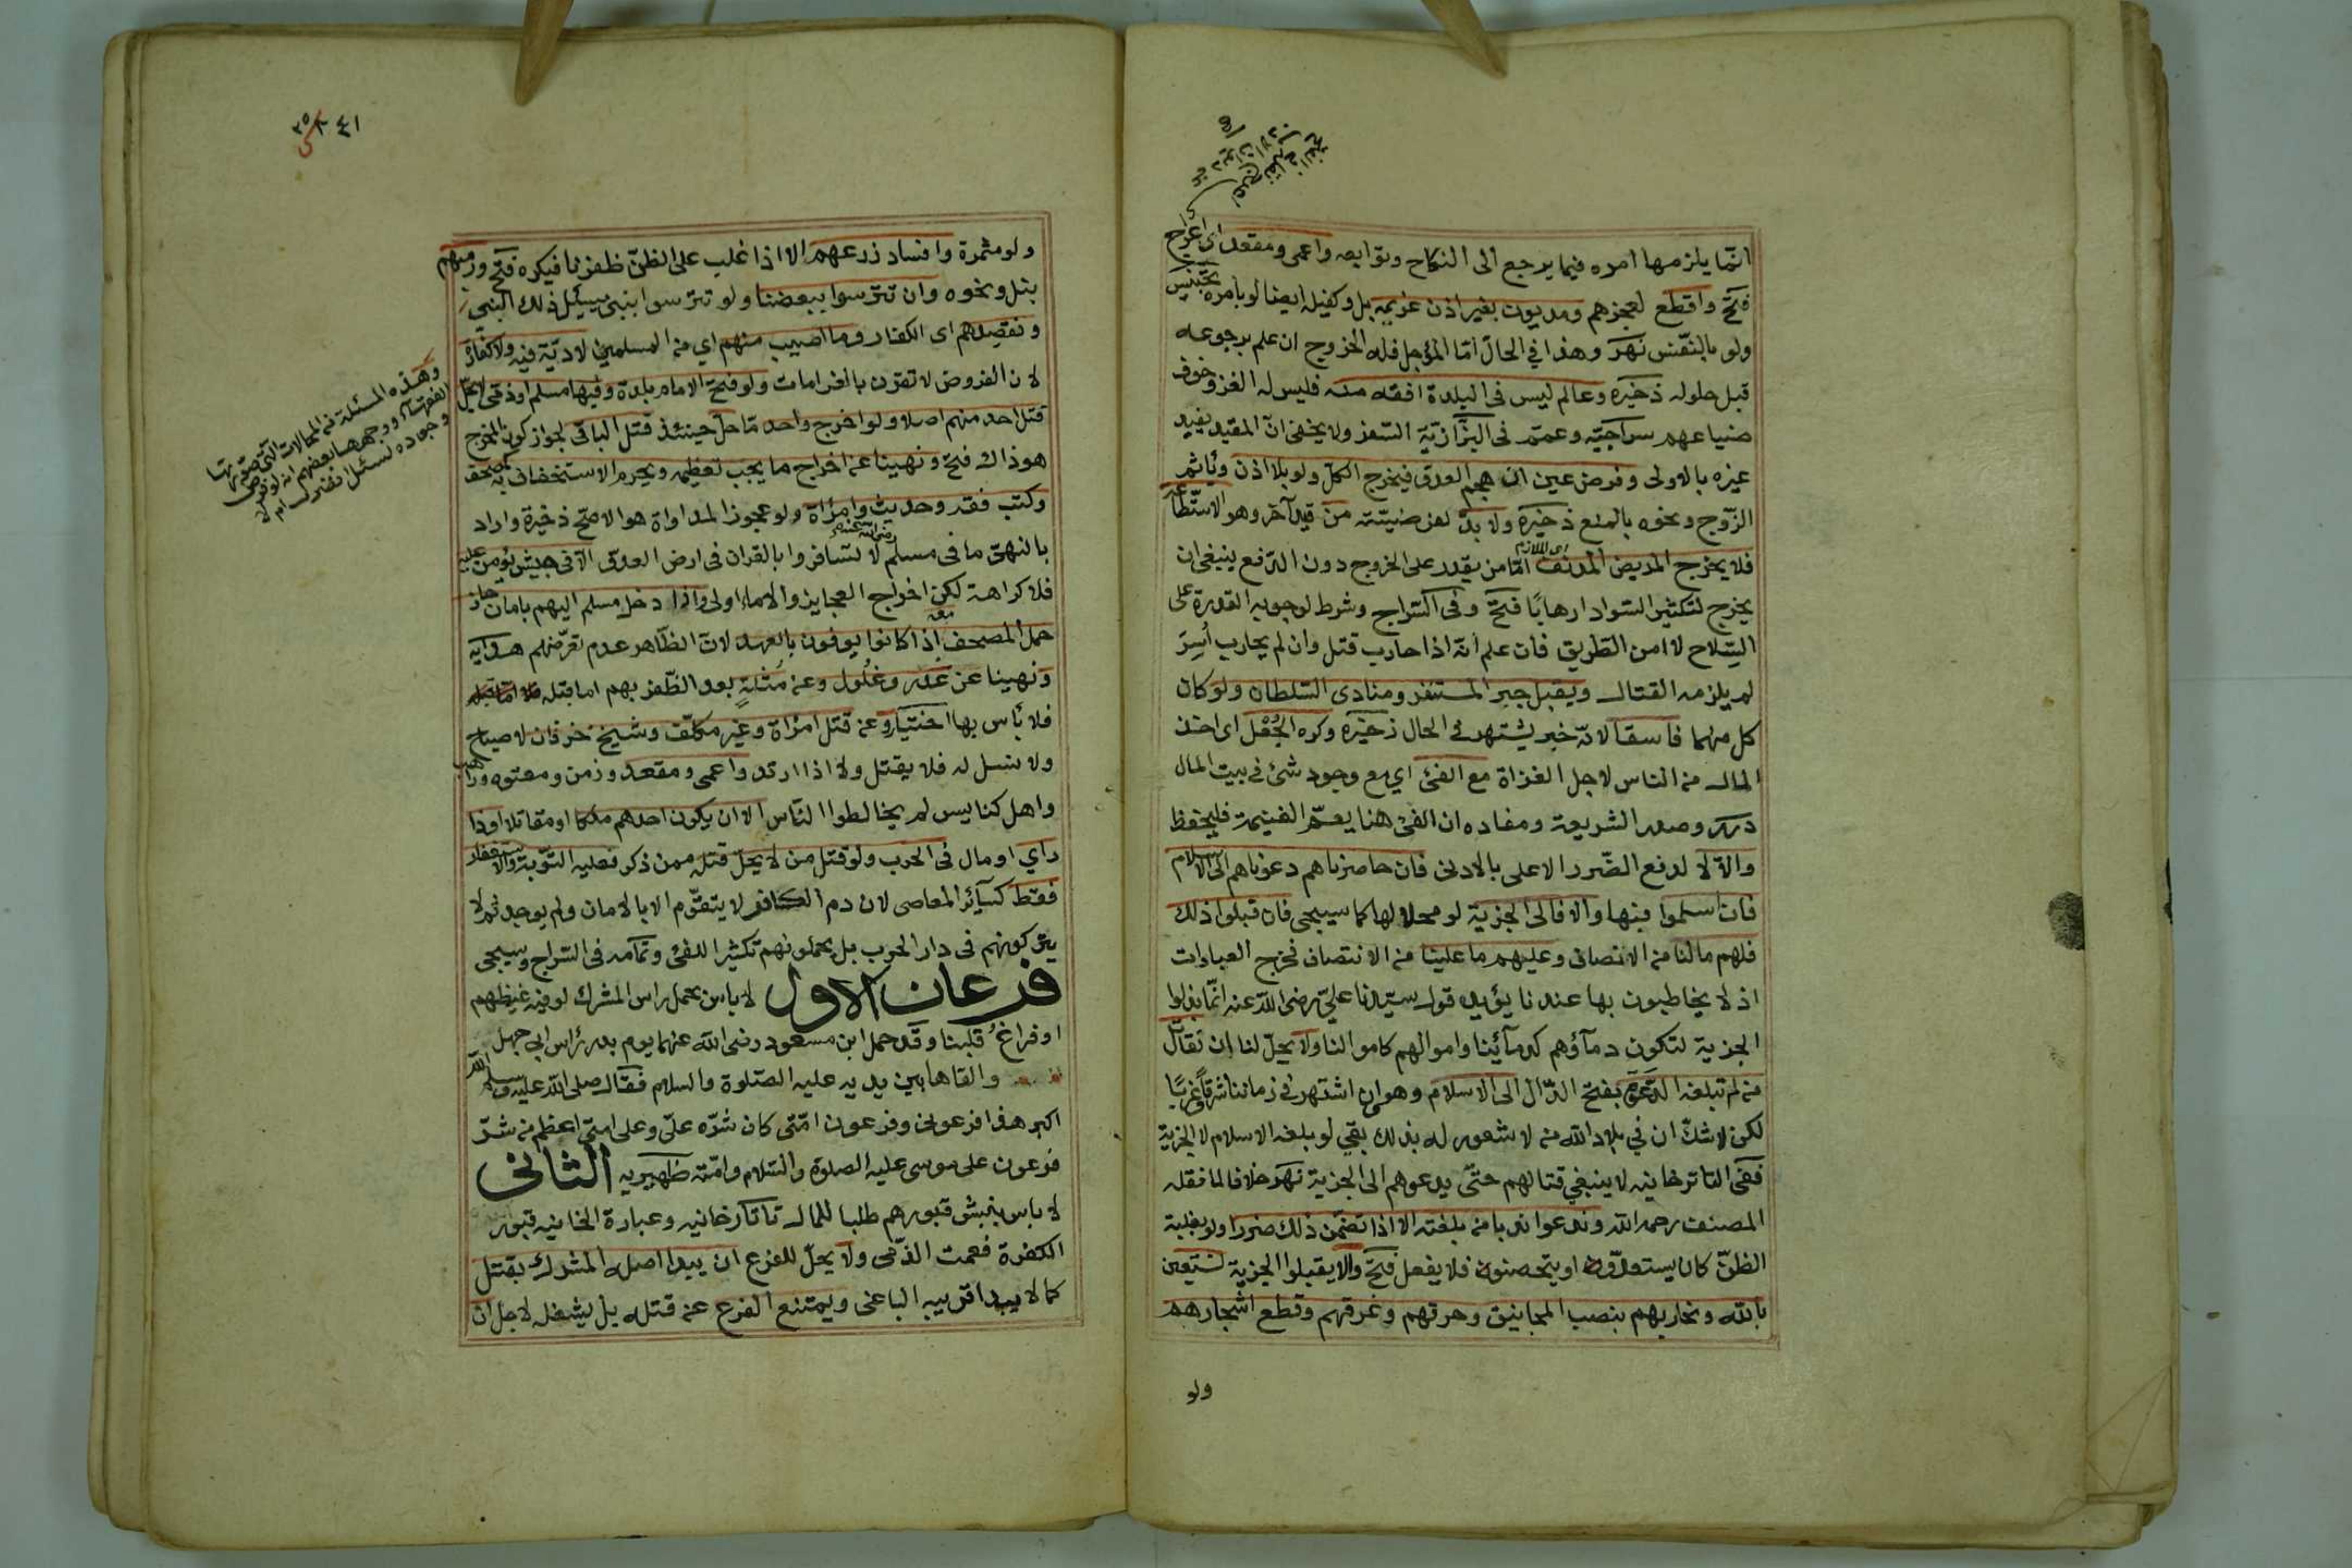 انّما يلزمها امره فيما يرجع الى النكاح وتوابعه واعمى ومقعد اى اعرج
فتح واقطع لعجزهم ومديون بغير اذن غريمه بل وكفيله ايضا لو بامره تجنيس
ولو بالنّفس نهر وهذا في الحال امّا المؤجل فله الخروج ان علم برجوعه
قبل حلوله ذخيره وعالم ليس فى البلدة افقه منه فليس له الغزو خوف
ضياعهم سراجيّه وعمّم فى البزّازيّة السّفر ولا يخفى انّ المقيد يفيد
غيره بالاولى وفرض عين ان هجم العدوّ فيخرج الكلّ ولو بلا اذن ويأثم
الزّوج ونحوه بالمنع ذخيره ولا بدّ لفرضيّته من قيد آخر وهو الاستطاعة
فلا يخرج المريض المدنف امّا من يقدر على الخروج دون الدّفع ينبغى ان
اى اللازم
يخرج لتكثير السّواد ارهابًا فتح وفى السّراج وشرط لوجوبه القدرة على
السّلاح لا امن الطّريق فان علم انّه اذا حارب قتل وان لم يحارب أُسِرَ
لم يلزمه القتال ويقبل خبر المستنفر ومنادى السّلطان ولو كان
كل منهما فاسقا لانّه خبر يشتهر في الحال ذخيره وكره الجُعْل اى اخذ
المال من الناس لاجل الغزاة مع الفئ اي مع وجود شئ في بيت المال
درر وصدر الشريعة ومفاده ان الفئ هنا يعمّ الغنيمة فليحفظ
والّا لا لدفع الضّرر الاعلى بالادنى فان حاصرناهم دعوناهم الى الاسلام
فان اسلموا فبها والا فالى الجزية لو محلا لها كما سيجى فان قبلوا ذلك
فلهم مالنا من الانصاف وعليهم ما علينا من الانتصاف فخرج العبادات
اذ لا يخاطبون بها عندنا يؤيده قول سيّدنا علىّ رضى اللّه عنه انّما بذلوا
الجزية لتكون دمآؤهم كدمآئنا واموالهم كاموالنا ولا يحلّ لنا ان نقاتل
من لم تبلغه الدّعوة بفتح الدّال الى الاسلام وهو ان اشتهر في زماننا شرقًا وغربًا
لكن لا شكّ ان في بلاد الله من لا شعور له بذلك بقي لو بلغه الاسلام لا الجزية
ففى التاترخانيه لا ينبغي قتالهم حتّى يدعوهم الى الجزية نهر خلافا لما نقله
المصنف رحمه اللّه وندعوا ندبا من بلغته الا اذا تضمّن ذلك ضررا ولو بغلبة
الظنّ كان يستعدّون او يتحصنون فلا يفعل فتح والا يقبلوا الجزية نستعين
باللّه ونحاربهم بنصب المجانيق وحرقهم وغرقهم وقطع اشجارهم
ولو
٤١
٣٥
ولو مثمرة وافساد زرعهم الا اذا غلب على الظنّ ظفرنا فيكره فتح ورميهم
بنبل ونحوه وان تترّسوا ببعضنا ولو تترّسوا بنبى سئل ذلك النّبى
ونقصدهم اى الكفار وما اصيب منهم اي من المسلمين لا ديّة فيه ولا كفّارة
لان الفروض لا تقرن بالغرامات ولو فتح الامام بلدة وفيها مسلم او ذمّى لا يحلّ
قتل احد منهم اصلا ولو اخرج واحد مّا حلّ حينئذ قتل الباقى لجواز كون المخرج
هو ذاك فتح ونهينا عن اخراج ما يجب تعظيمه ويحرم الاستخفاف به كمصحف
وكتب فقه وحديث وامرأة ولو عجوز المداواة هو الاصح ذخيرة واراد
بالنهى ما فى مسلم لا تسافروا بالقران فى ارض العدوّ الّا فى جيش يؤمن عليه
فلا كراهة لكن اخراج العجايز والاماء اولى واذا دخل مسلم اليهم بامان جاز
حمل المصحف معه اذا كانوا يوفون بالعهد لانّ الظّاهر عدم تعرّضهم هدايه
ونهينا عن غدر وغلول وعن مُثلةٍ بعد الظّفر بهم اما قبله
فلا بأس بها اختيار وعن قتل امرأة وغير مكلّف وشيخ خرفان لا صياح
ولا نسل له فلا يقتل ولا اذا ارتد واعمى ومقعد وزمن ومعتوه وراهب
واهل كنايس لم يخالطوا النّاس الا ان يكون احدهم ملكا او مقاتلا او ذا
راي او مال فى الحرب ولو قتل من لا يحلّ قتله ممن ذكر فعليه التّوبة والاستغفار
فقط كسآئر المعاصى لان دم الكافر لا يتقوّم الا بالامان ولم يوجد ثم لا
يتركونهم فى دار الحرب بل يحملونهم تكثيرا للفئ وتمامه فى السّراج وسيجى
فرعان الاول لا باس بحمل راس المشرك لو فيه غيظهم
او فراغ قلبنا وقد حمل ابن مسعود رضى اللّه عنهما يوم بدر رأس ابى جهل
والقاها بين يديه عليه الصّلوة والسلام فقال صلى اللّه عليه وسلم اللّه
اكبر هذا فرعونى وفرعون امّتى كان شرّه علىّ وعلى امتى اعظم من شرّ
فرعون على موسى عليه الصلوة والسّلام وامّته ظهيريه الثانى
لا باس بنبش قبورهم طلبا للمال تاتارخانيه وعبارة الخانيه قبور
الكفرة فعمت الذّمى ولا يحلّ للفرع ان يبدا اصله المشرك بقتل
كما لا يبدا قريبه الباغى ويمتنع الفرع عن قتله بل يشغله لاجل ان